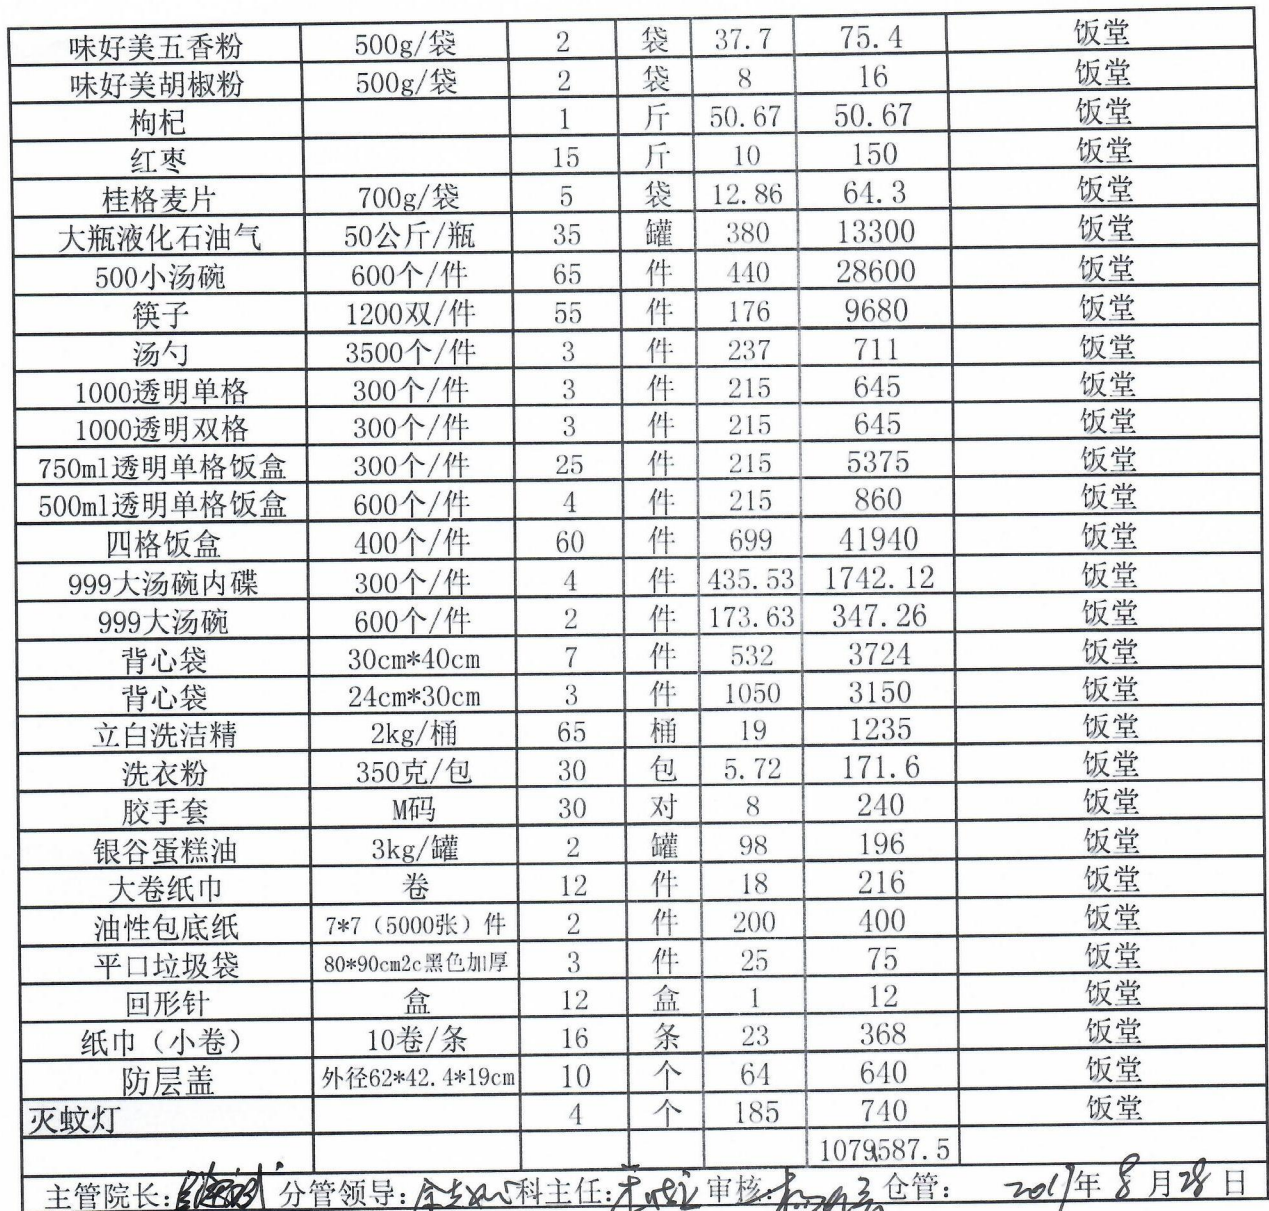 味好美五香粉 500g/袋 2 袋 37.7 75.4 饭堂
味好美胡椒粉 500g/袋 2 袋 8 16 饭堂
枸杞 1 斤 50.67 50.67 饭堂
红枣 15 斤 10 150 饭堂
桂格麦片 700g/袋 5 袋 12.86 64.3 饭堂
大瓶液化石油气 50公斤/瓶 35 罐 380 13300 饭堂
500小汤碗 600个/件 65 件 440 28600 饭堂
筷子 1200双/件 55 件 176 9680 饭堂
汤勺 3500个/件 3 件 237 711 饭堂
1000透明单格 300个/件 3 件 215 645 饭堂
1000透明双格 300个/件 3 件 215 645 饭堂
750ml透明单格饭盒 300个/件 25 件 215 5375 饭堂
500ml透明单格饭盒 600个/件 4 件 215 860 饭堂
四格饭盒 400个/件 60 件 699 41940 饭堂
999大汤碗内碟 300个/件 4 件 435.53 1742.12 饭堂
999大汤碗 600个/件 2 件 173.63 347.26 饭堂
背心袋 30cm*40cm 7 件 532 3724 饭堂
背心袋 24cm*30cm 3 件 1050 3150 饭堂
立白洗洁精 2kg/桶 65 桶 19 1235 饭堂
洗衣粉 350克/包 30 包 5.72 171.6 饭堂
胶手套 M码 30 对 8 240 饭堂
银谷蛋糕油 3kg/罐 2 罐 98 196 饭堂
大卷纸巾 卷 12 件 18 216 饭堂
油性包底纸 7*7（5000张）件 2 件 200 400 饭堂
平口垃圾袋 80*90cm2c黑色加厚 3 件 25 75 饭堂
回形针 盒 12 盒 1 12 饭堂
纸巾（小卷） 10卷/条 16 条 23 368 饭堂
防层盖 外径62*42.4*19cm 10 个 64 640 饭堂
灭蚊灯 4 个 185 740 饭堂
1079587.5
主管院长: 分管领导: 科主任: 审核: 仓管: 2019年8月28日